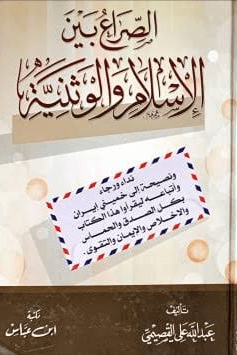 الصراع بين
الإسلام والوثنية
نداء ورجاء
ونصيحة الى خميني إيران
واتباعه ليقرأوا هذا الكتاب
بكل الصدق والحماس
والاخلاص والإيمان والتقوى.
تأليف
عبدالله علي القصيمي
مكتبة
ابن عباس